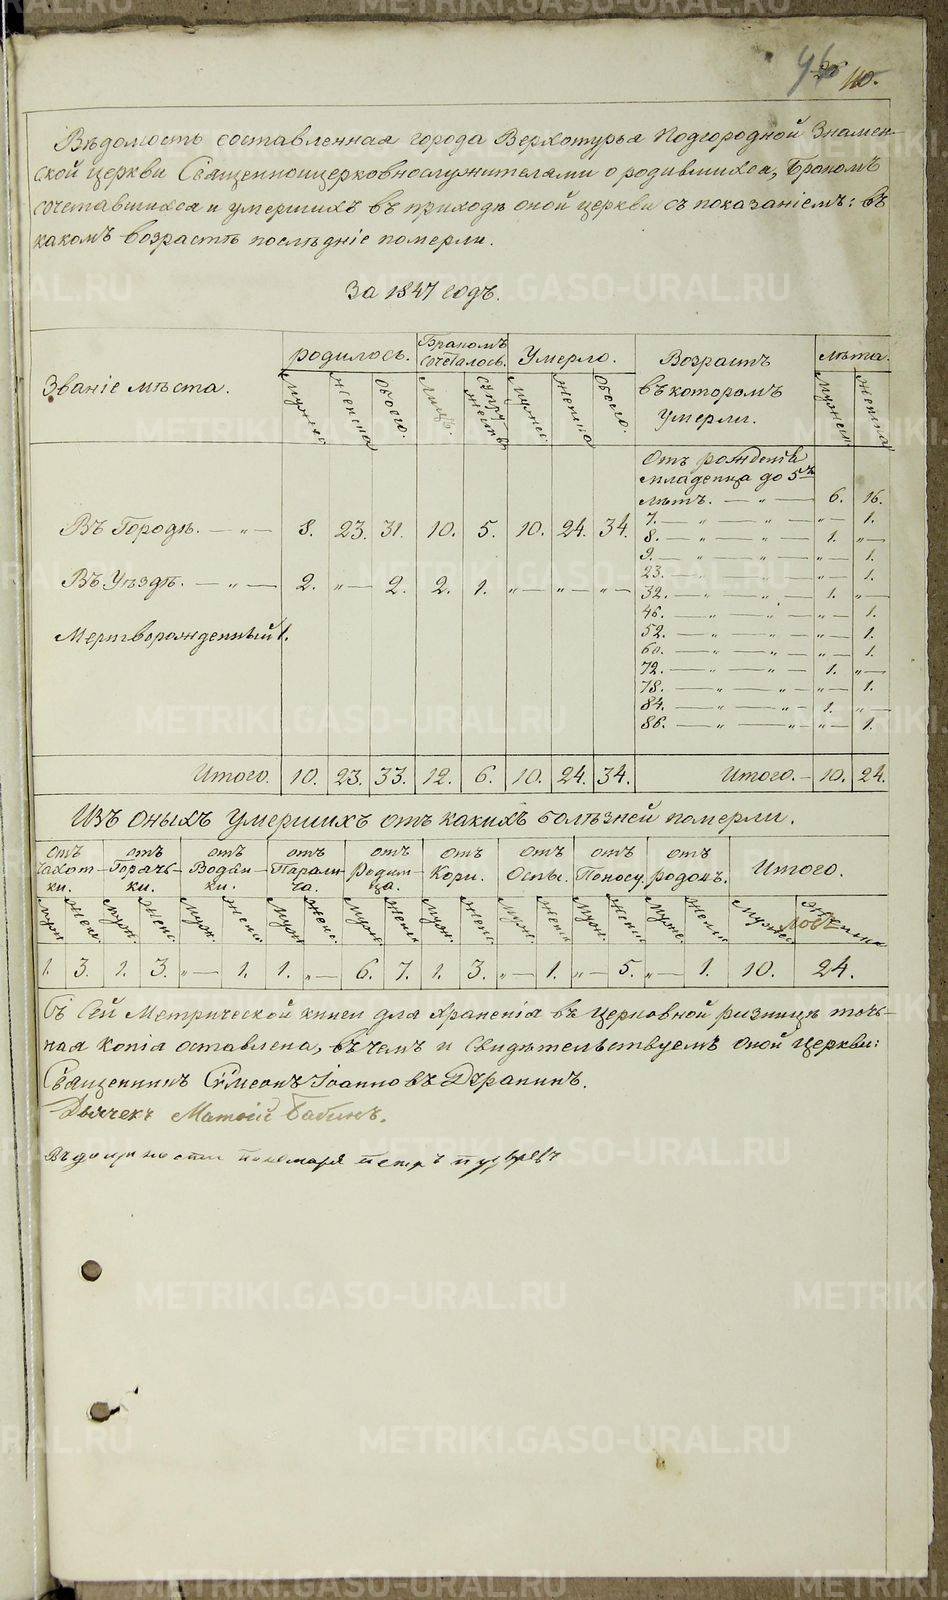 110.
Вѣдомость составленная города Верхотурья Подгородной Знамен-
ской церкви Священноицерковнослужителями о родившихся, Бракомъ
сочетавшихся и умершихъ въ приходѣ оной церкви съ показаніемъ: въ
какомъ возрастѣ послѣдніе померли.
За 1847 годъ.
Званіе мѣста. родилось. Бракомъ сочеталось. Умерло. Возрастъ въ которомъ умерли. лѣта.
Мужеска Женска Обоего. Лицъ. Супружествъ Мужес. Женска Обоего. Мужеск Женска
Отъ рожденія
младенца до 5ти
лѣтъ. — „ — 6. 16.
Въ Городѣ. — „ — 8. 23. 31. 10. 5. 10. 24. 34.
7. — „ — „ — „ — 1.
8. — „ — „ — 1. „ —
9. — „ — „ — „ — 1.
Въ Уѣздѣ. — „ — 2. „ — 2. 2. 1. „ — „ — „ —
23. — „ — „ — „ — 1.
32. — „ — „ — 1. „ —
46. — „ — „ — „ — 1.
Мертворожденный 1.
52. — „ — „ — „ — 1.
60. — „ — „ — „ — 1.
72. — „ — „ — 1. „ —
78. — „ — „ — „ — 1.
84. — „ — „ — 1. „ —
86. — „ — „ — „ — 1.
Итого. 10. 23. 33. 12. 6. 10. 24. 34. Итого. — 10. 24.
Изъ оныхъ умершихъ отъ какихъ болѣзней померли.
отъ Чахотки. отъ Горячьки. отъ Водяники. отъ Паралича. отъ Родимца. отъ Кори. отъ Оспы. отъ Поносу. отъ родовъ. Итого.
Муж. Женс. Муж. Женс. Муж. Женс. Муж. Женс. Муж. Женс. Муж. Женс. Муж. Женс. Муж. Женс. Муж. Женс. Мужес
1. 3. 1. 3. „ — 1. 1. „ — 6. 7. 1. 3. „ — 1. „ — 5. „ — 1. 10. 24.
Съ Сей Метрической книги для храненія въ церковной ризницѣ точь-
ная копія оставлена, въ чемъ и свидѣтельствуемъ оной церкви:
Священникъ Сѵмеонъ Іоанновъ Дерапинъ.
Дьячекъ Матѳій Бабинъ.
Въ должности пономаря петръ
METRIKI.GASO-URAL.RU